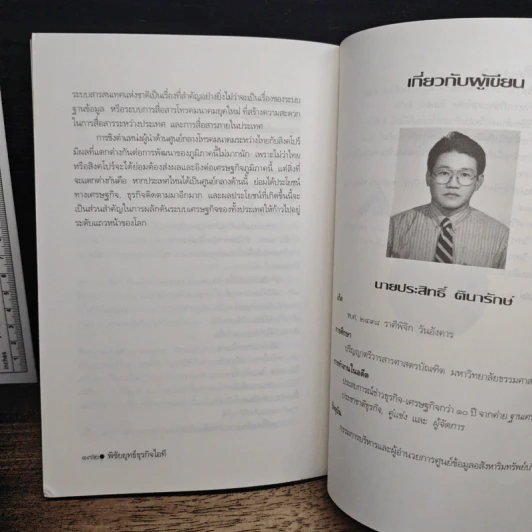 ระบบสารสนเทศแห่งชาติเป็นเรื่องที่สำคัญอย่างยิ่งไม่ว่าจะเป็นเรื่องของระบบ
ฐานข้อมูล หรือระบบการสื่อสารโทรคมนาคมยุคใหม่ ที่สร้างความสะดวก
ในการสื่อสารระหว่างประเทศ และการสื่อสารภายในประเทศ
การชิงตำแหน่งผู้นำด้านศูนย์กลางโทรคมนาคมระหว่างไทยกับสิงคโปร์
มีผลที่แตกต่างกันต่อการพัฒนาของภูมิภาคนี้ไม่มากนัก เพราะไม่ว่าไทย
หรือสิงคโปร์จะได้ย่อมต้องส่งผลและอิงต่อเศรษฐกิจภูมิภาคนี้ แต่สิ่งที่
จะแตกต่างกันคือ หากประเทศไหนได้เป็นศูนย์กลางด้านนี้ ย่อมได้ประโยชน์
ทางเศรษฐกิจ, ธุรกิจติดตามมาอีกมาก และผลประโยชน์ที่เกิดขึ้นนี้จะ
เป็นส่วนสำคัญในการผลักดันระบบเศรษฐกิจของทั้งประเทศให้ก้าวไปอยู่
ระดับแถวหน้าของโลก
๑๗๒ ● พิชัยยุทธ์ธุรกิจไอที
เกี่ยวกับผู้เขียน
นายประสิทธิ์ ดินารักษ์
เกิด
พ.ศ. ๒๔๙๘ ราศีพิจิก วันอังคาร
การศึกษา
ปริญญาตรีวารสารศาสตรบัณฑิต มหาวิทยาลัยธรรมศาส
การทำงานในอดีต
ประสบการณ์ข่าวธุรกิจ-เศรษฐกิจกว่า ๑๐ ปี จากค่าย ฐานเศร
ประชาชาติธุรกิจ, คู่แข่ง และ ผู้จัดการ
ปัจจุบัน
กรรมการบริหารและผู้อำนวยการศูนย์ข้อมูลอสังหาริมทรัพย์